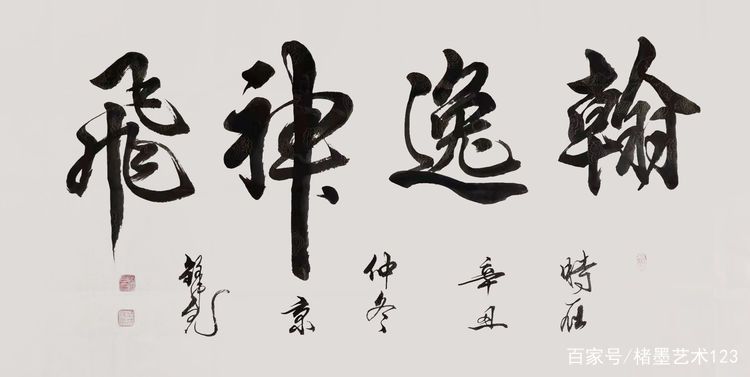 翰逸神飛
時在辛丑仲冬京
百家号/楮墨艺术123